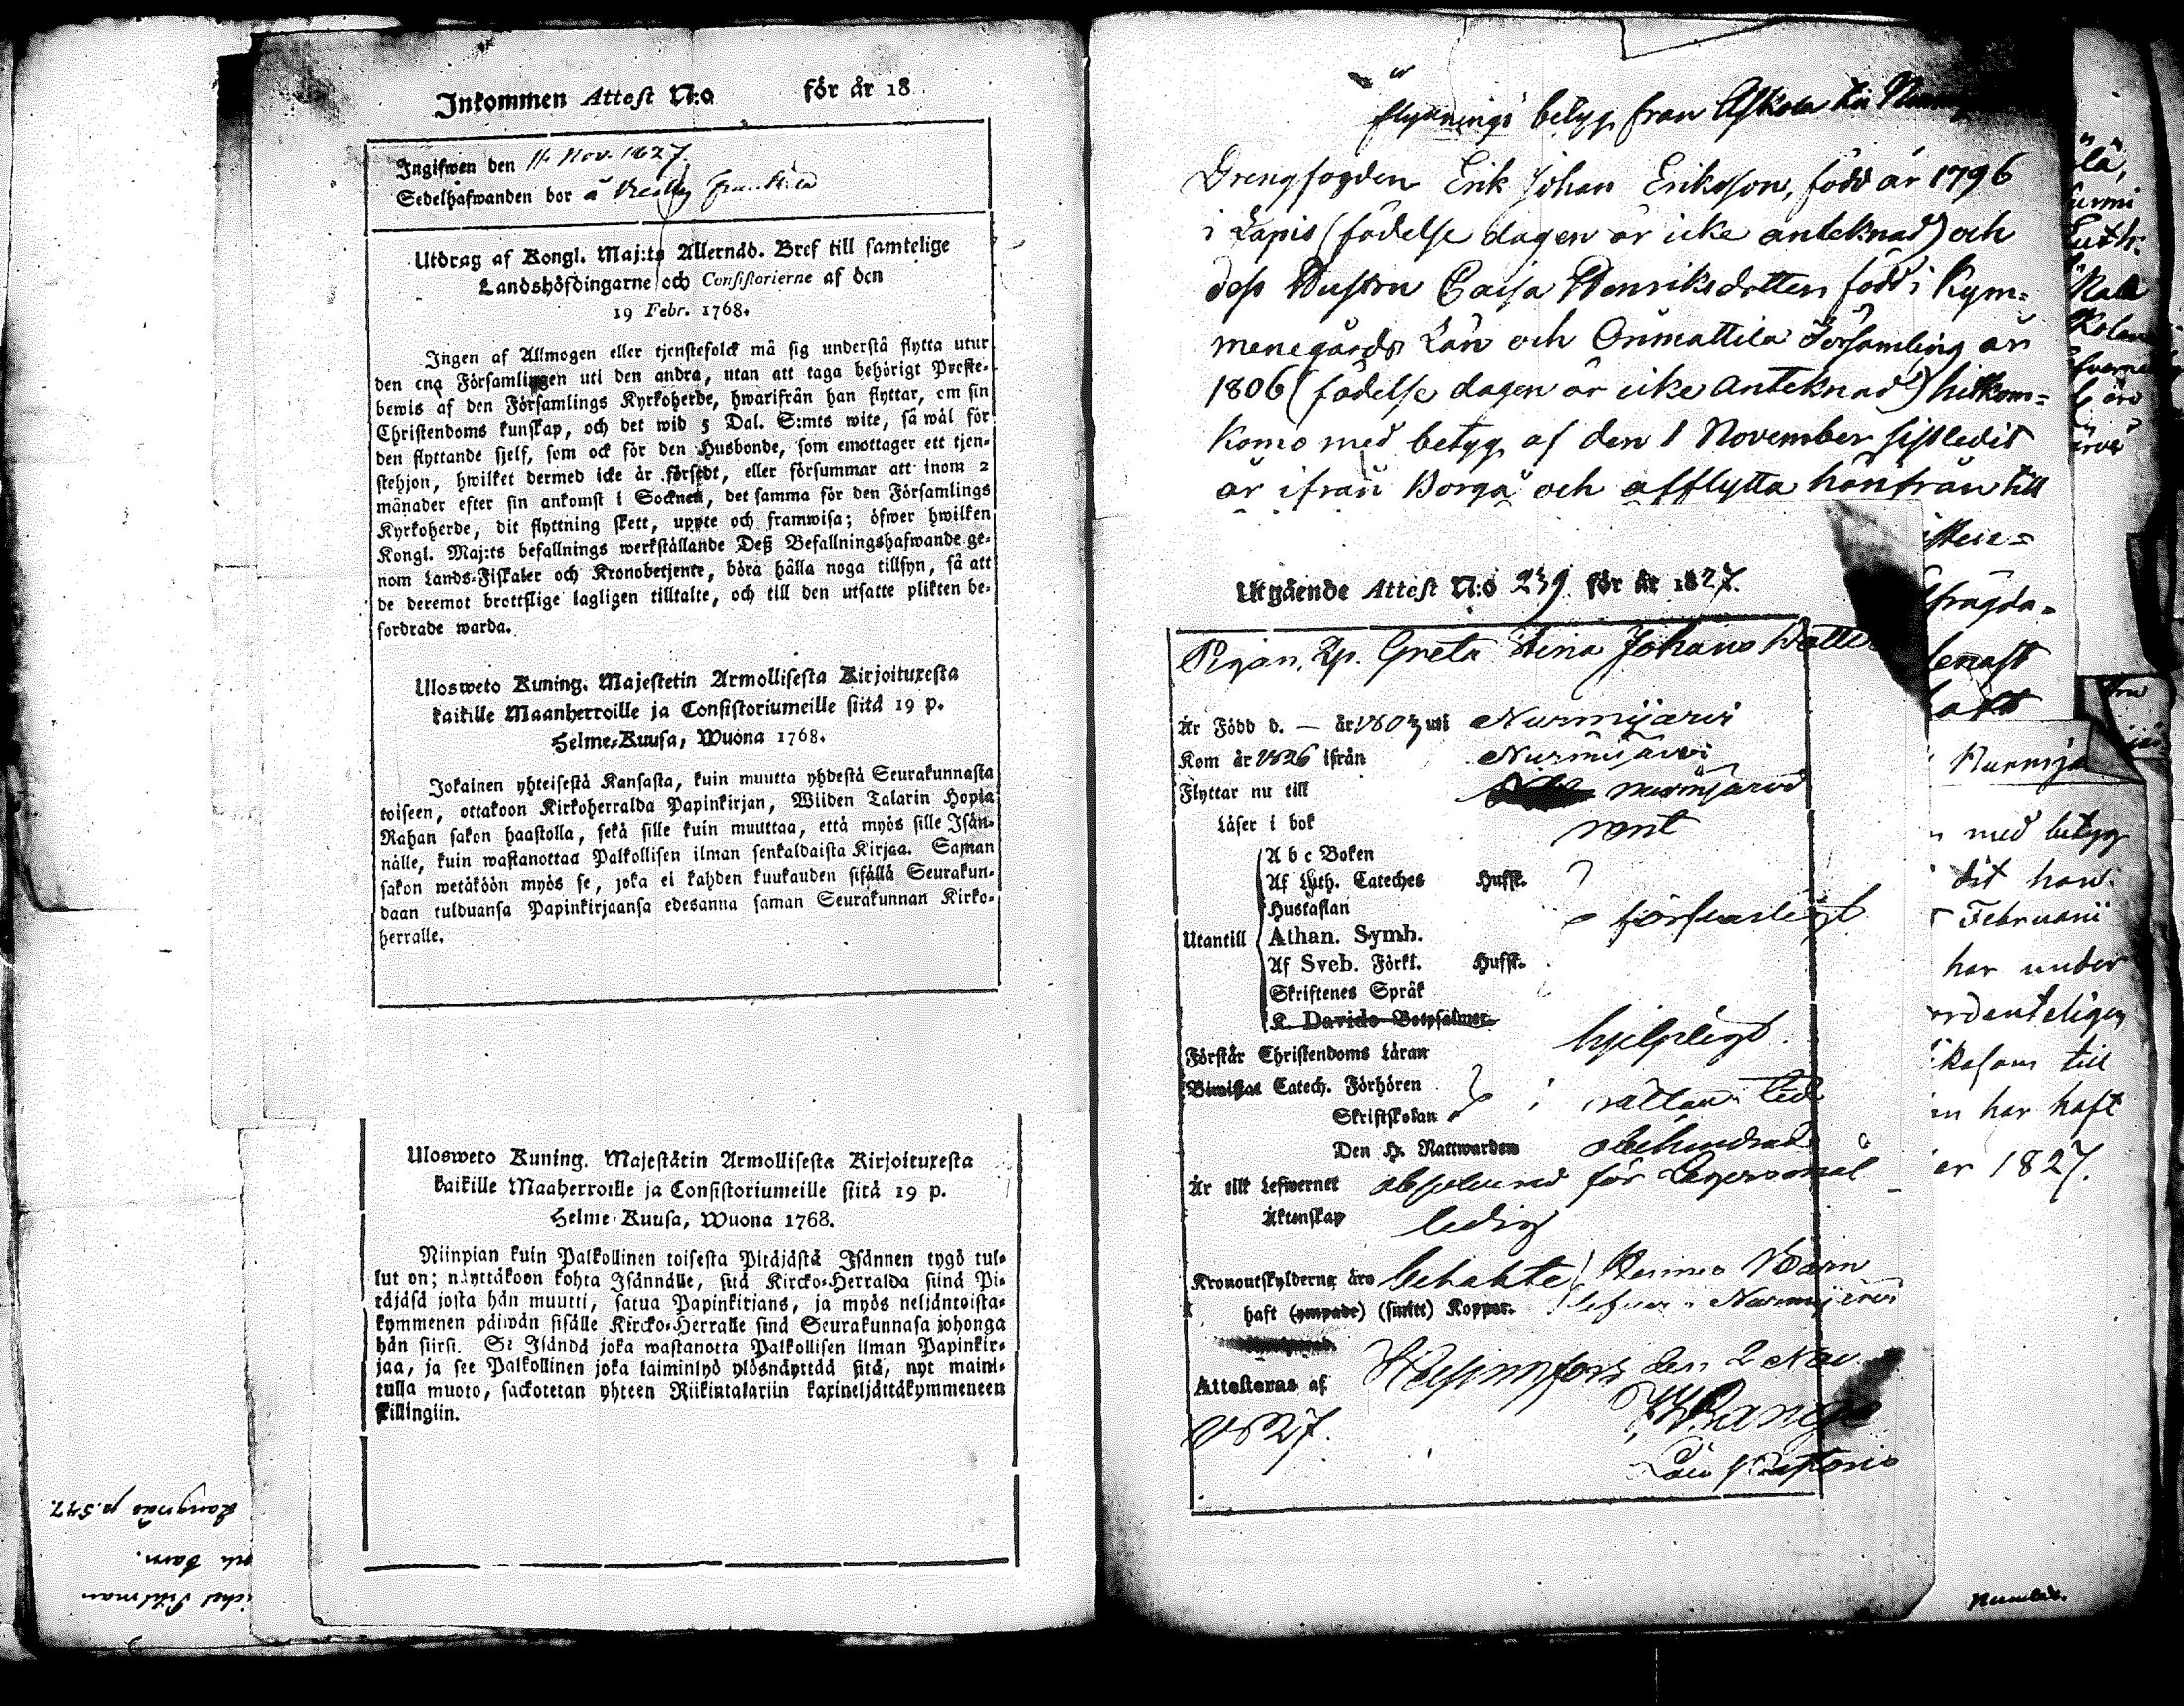 Inkommen Attest N:o för år 18
Ingifwen den 11 Nov. 1827.
Sedelhafwanden bor å
Utdrag af Kongl. Maj:ts Allernåd. Bref till samtelige
Landshöfdingarne och Consistorierne af den
19 Febr. 1768.
Ingen af Allmogen eller tjenstefolck må sig understå flytta utur
den ena Församlingen uti den andra, utan att taga behörigt Preste-
bewis af den Församlings Kyrkoherde, hwarifrån han flyttar, om sin
Christendoms kunskap, och det wid 5 Dal. S:mts wite, så wäl för
den flyttande sjelf, som ock för den Husbonde, som emottager ett tjen-
stehjon, hwilket dermed icke är försedt, eller försummar att inom 2
månader efter sin ankomst i Socknen, det samma för den Församlings
Kyrkoherde, dit flyttning skett, uppte och framwisa; öfwer hwilken
Kongl. Maj:ts befallnings werkställande Deß Befallningshafwande ge-
nom Lands-Fiskaler och Kronobetjente, böra hålla noga tillsyn, så att
de deremot brottslige lagligen tilltalte, och till den utsatte plikten be-
fordrade warda.
Ulosweto Kuning. Majestetin Armollisesta Kirjoituxesta
kaikille Maanherroille ja Consistoriumeille siitä 19 p.
Helme-Kuusa, Wuona 1768.
Jokainen yhteisestä Kansasta, kuin muutta yhdestä Seurakunnasta
toiseen, ottakoon Kirkoherralda Papinkirjan, Wiiden Talarin Hopia
Rahan sakon haastolla, sekä sille kuin muuttaa, että myös sille Isän-
nälle, kuin wastanottaa Palkollisen ilman senkaldaista Kirjaa. Saman
sakon wetäköön myös se, joka ei kahden kuukauden sisällä Seurakun-
daan tulduansa Papinkirjaansa edesanna saman Seurakunnan Kirko-
herralle.
Ulosweto Kuning. Majestätin Armollisesta Kirjoituxesta
kaikille Maaherroille ja Consistoriumeille siitä 19 p.
Helme-Kuusa, Wuona 1768.
Niinpian kuin Palkollinen toisesta Pitäjästä Isännen tygö tul-
lut on; näyttäkoon kohta Isännälle, sitä Kircko-Herralda siinä Pi-
täjäsä josta hän muutti, satua Papinkirjans, ja myös neljäntoista-
kymmenen päiwän sisälle Kircko-Herralle sinä Seurakunnasa johonga
hän siirsi. Se Isändä joka wastanotta Palkollisen ilman Papinkir-
jaa, ja see Palkollinen joka laiminlyö ylösnäyttää sitä, nyt maini-
tulla muoto, sackotetan yhteen Riikintalariin kaxineljättäkymmeneen
killingiin.
Långnäs p. 577.
och barn.
flyttnings betyg från Askola till
Drengfogden Erik Johan Eriksson, född år 1796
i Lapis (födelse dagen är icke anteknad) och
dess Hustru Caisa Henriksdotter född i Kym-
menegårds Län och Orimattila Församling år
1806 (födelse dagen är icke anteknad) hitkom-
komo med betyg af den 1 November sistledit
år ifrån Borgå och afflytta hänfrån till
Utgående Attest N:o 239. för år 1827.
Pigan, Greta Stina Johansdotter
Är Född d. — år 1803 uti Nurmijärvi
Kom år 1826 ifrån Nurmijärvi
Flyttar nu till Nurmijärvi
Läser i bok rent
A b c Boken
Af Luth. Cateches Hufst.
Hustaflan försvarligt
Utantill Athan. Symb.
Af Sveb. Förkl. Hufst.
Skriftenes Språk
K. Davids Botpsalmer
Förstår Christendoms Läran hjelpligt.
Biwistat Catech. Förhören
Skriftskolan
Den H. Nattwarden obehindrad
Är till Lefwernet absolverad för Lägersmål
Äktenskap ledig
Kronoutskylderne äro betalte Hennes Barn
haft (ympade) (smitt) Koppor. i Nurmijervi
Attesteras af Helsingfors den 2 Nov.
1827.
med betyg
dit hon
Februarii
har under
ordenteligen
till
har haft
1827.